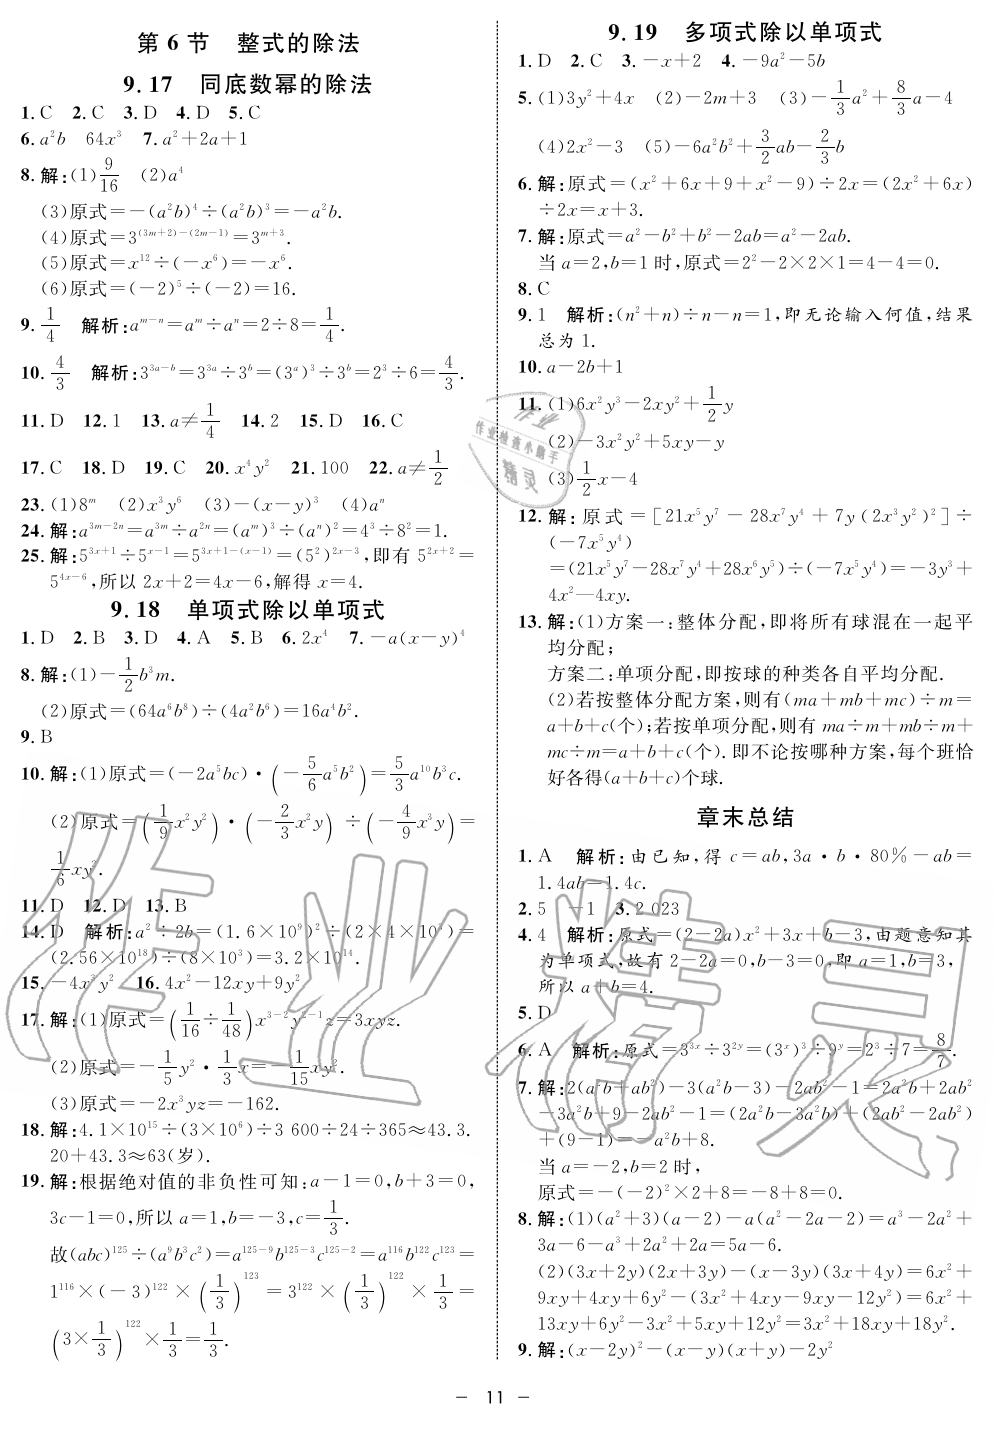 第6节　整式的除法
9.17　同底数幂的除法
1.C　2.C　3.D　4.D　5.C
6.a²b　64x³　7.a²+2a+1
8.解:(1)9/16　(2)a⁴
(3)原式=-(a²b)⁴÷(a²b)³=-a²b.
(4)原式=3^{(3m+2)-(2m-1)}=3^{m+3}.
(5)原式=x¹²÷(-x⁶)=-x⁶.
(6)原式=(-2)⁵÷(-2)=16.
9.1/4　解析:a^{m-n}=a^m÷a^n=2÷8=1/4.
10.4/3　解析:3^{3a-b}=3^{3a}÷3^b=(3^a)³÷3^b=2³÷6=4/3.
11.D　12.1　13.a≠1/4　14.2　15.D　16.C
17.C　18.D　19.C　20.x⁴y²　21.100　22.a≠1/2
23.(1)8^m　(2)x³y⁶　(3)-(x-y)³　(4)a^n
24.解:a^{3m-2n}=a^{3m}÷a^{2n}=(a^m)³÷(a^n)²=4³÷8²=1.
25.解:5^{3x+1}÷5^{x-1}=5^{3x+1-(x-1)}=(5²)^{2x-3},即有5^{2x+2}=
5^{4x-6},所以2x+2=4x-6,解得x=4.
9.18　单项式除以单项式
1.D　2.B　3.D　4.A　5.B　6.2x⁴　7.-a(x-y)⁴
8.解:(1)-1/2b³m.
(2)原式=(64a⁶b⁸)÷(4a²b⁶)=16a⁴b².
9.B
10.解:(1)原式=(-2a⁵bc)·(-5/6a⁵b²)=5/3a¹⁰b³c.
(2)原式=(1/9x²y²)·(-2/3x²y)÷(-4/9x³y)=
1/6xy².
11.D　12.D　13.B
14.D　解析:a²÷2b=(1.6×10⁹)²÷(2×4×10³)=
(2.56×10¹⁸)÷(8×10³)=3.2×10¹⁴.
15.-4x³y²　16.4x²-12xy+9y²
17.解:(1)原式=(1/16÷1/48)x^{3-2}y^{2-1}z=3xyz.
(2)原式=-1/5y²·1/3x=-1/15xy².
(3)原式=-2x³yz=-162.
18.解:4.1×10¹⁵÷(3×10⁶)÷3 600÷24÷365≈43.3.
20+43.3≈63(岁).
19.解:根据绝对值的非负性可知:a-1=0,b+3=0,
3c-1=0,所以a=1,b=-3,c=1/3.
故(abc)¹²⁵÷(a⁹b³c²)=a^{125-9}b^{125-3}c^{125-2}=a¹¹⁶b¹²²c¹²³=
1¹¹⁶×(-3)¹²²×(1/3)¹²³=3¹²²×(1/3)¹²²×1/3=
(3×1/3)¹²²×1/3=1/3.
9.19　多项式除以单项式
1.D　2.C　3.-x+2　4.-9a²-5b
5.(1)3y²+4x　(2)-2m+3　(3)-1/3a²+8/3a-4
(4)2x²-3　(5)-6a²b²+3/2ab-2/3b
6.解:原式=(x²+6x+9+x²-9)÷2x=(2x²+6x)
÷2x=x+3.
7.解:原式=a²-b²+b²-2ab=a²-2ab.
当a=2,b=1时,原式=2²-2×2×1=4-4=0.
8.C
9.1　解析:(n²+n)÷n-n=1,即无论输入何值,结果
总为1.
10.a-2b+1
11.(1)6x²y³-2xy²+1/2y
(2)-3x²y²+5xy-y
(3)1/2x-4
12.解:原式=[21x⁵y⁷-28x⁷y⁴+7y(2x³y²)²]÷
(-7x⁵y⁴)
=(21x⁵y⁷-28x⁷y⁴+28x⁶y⁵)÷(-7x⁵y⁴)=-3y³+
4x²-4xy.
13.解:(1)方案一:整体分配,即将所有球混在一起平
均分配;
方案二:单项分配,即按球的种类各自平均分配.
(2)若按整体分配方案,则有(ma+mb+mc)÷m=
a+b+c(个);若按单项分配,则有ma÷m+mb÷m+
mc÷m=a+b+c(个).即不论按哪种方案,每个班恰
好各得(a+b+c)个球.
章末总结
1.A　解析:由已知,得c=ab,3a·b·80%-ab=
1.4ab=1.4c.
2.5　-1　3.2 023
4.4　解析:原式=(2-2a)x²+3x+b-3,由题意知其
为单项式,故有2-2a=0,b-3=0,即a=1,b=3,
所以a+b=4.
5.D
6.A　解析:原式=3^{3x}÷3^{2y}=(3^x)³÷9^y=2³÷7=8/7.
7.解:2(a²b+ab²)-3(a²b-3)-2ab²-1=2a²b+2ab²
-3a²b+9-2ab²-1=(2a²b-3a²b)+(2ab²-2ab²)
+(9-1)=-a²b+8.
当a=-2,b=2时,
原式=-(-2)²×2+8=-8+8=0.
8.解:(1)(a²+3)(a-2)-a(a²-2a-2)=a³-2a²+
3a-6-a³+2a²+2a=5a-6.
(2)(3x+2y)(2x+3y)-(x-3y)(3x+4y)=6x²+
9xy+4xy+6y²-(3x²+4xy-9xy-12y²)=6x²+
13xy+6y²-3x²+5xy+12y²=3x²+18xy+18y².
9.解:(x-2y)²-(x-y)(x+y)-2y²
作业
作业检查小助手
精灵
作业精灵
- 11 -